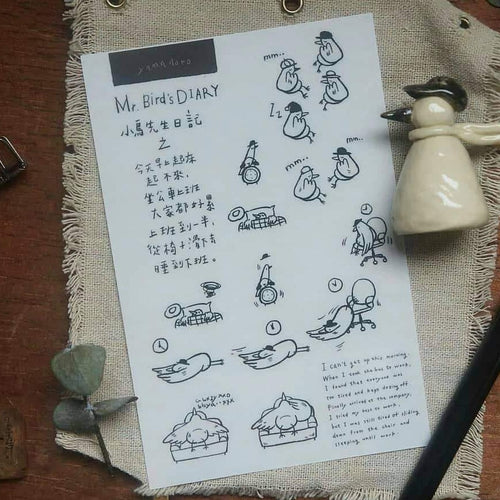 yamadoro
Mr. Bird's DIARY
小鳥先生日記
之
今天早上起床
起不來,
坐公車上班
大家都好累
上班到一半,
從椅子滑下去
睡到下班。
mm..
mm..
Zz
mm..
I can't get up this morning.
When I took the bus to work,
I found that everyone was
too tired and kept dozing off.
Finally arrived at the company,
I tried my best to work..
but I was still tired of sliding
down from the chair and
sleeping until work.